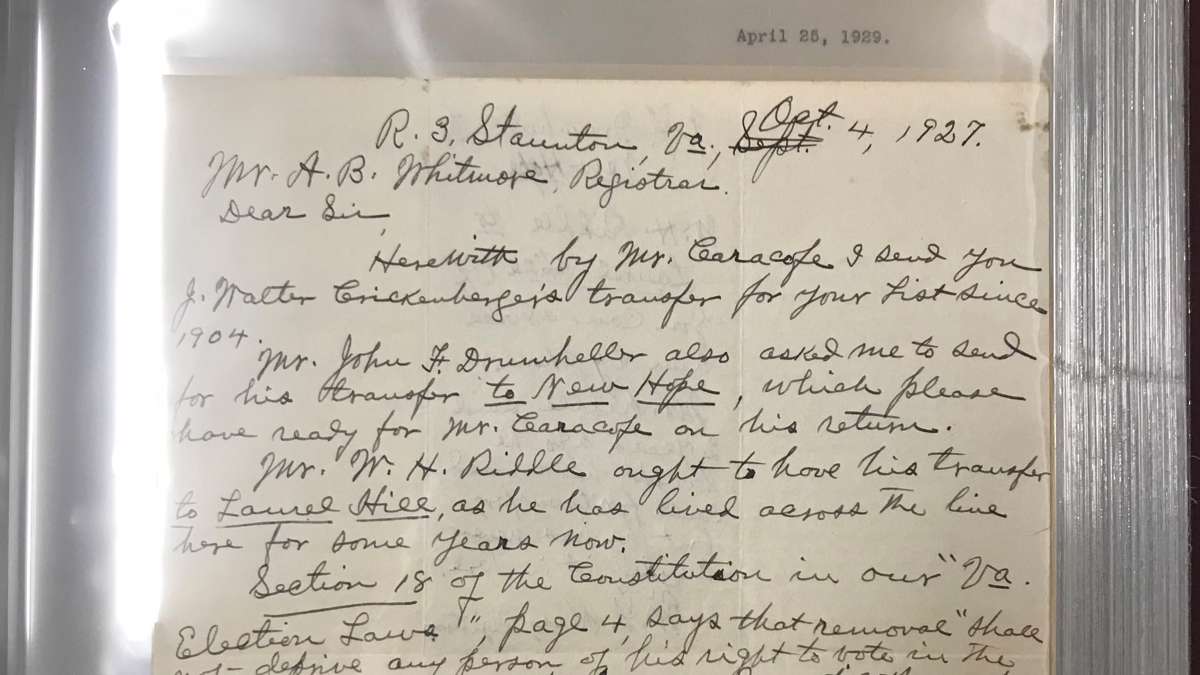 April 25, 1929.
R. 3, Staunton, Va., Sept. Oct. 4, 1927.
Mr. A. B. Whitmore, Registrar.
Dear Sir,
Herewith by Mr. Caracofe I send you
J. Walter Crickenberger's transfer for your List since
1904.
Mr. John F. Drumheller also asked me to send
for his transfer to New Hope, which please
have ready for Mr. Caracofe on his return.
Mr. W. H. Riddle ought to have his transfer
to Laurel Hill, as he has lived across the line
here for some years now.
Section 18 of the Constitution in our "Va.
Election Laws", page 4, says that removal "shall
not deprive any person of his right to vote in the